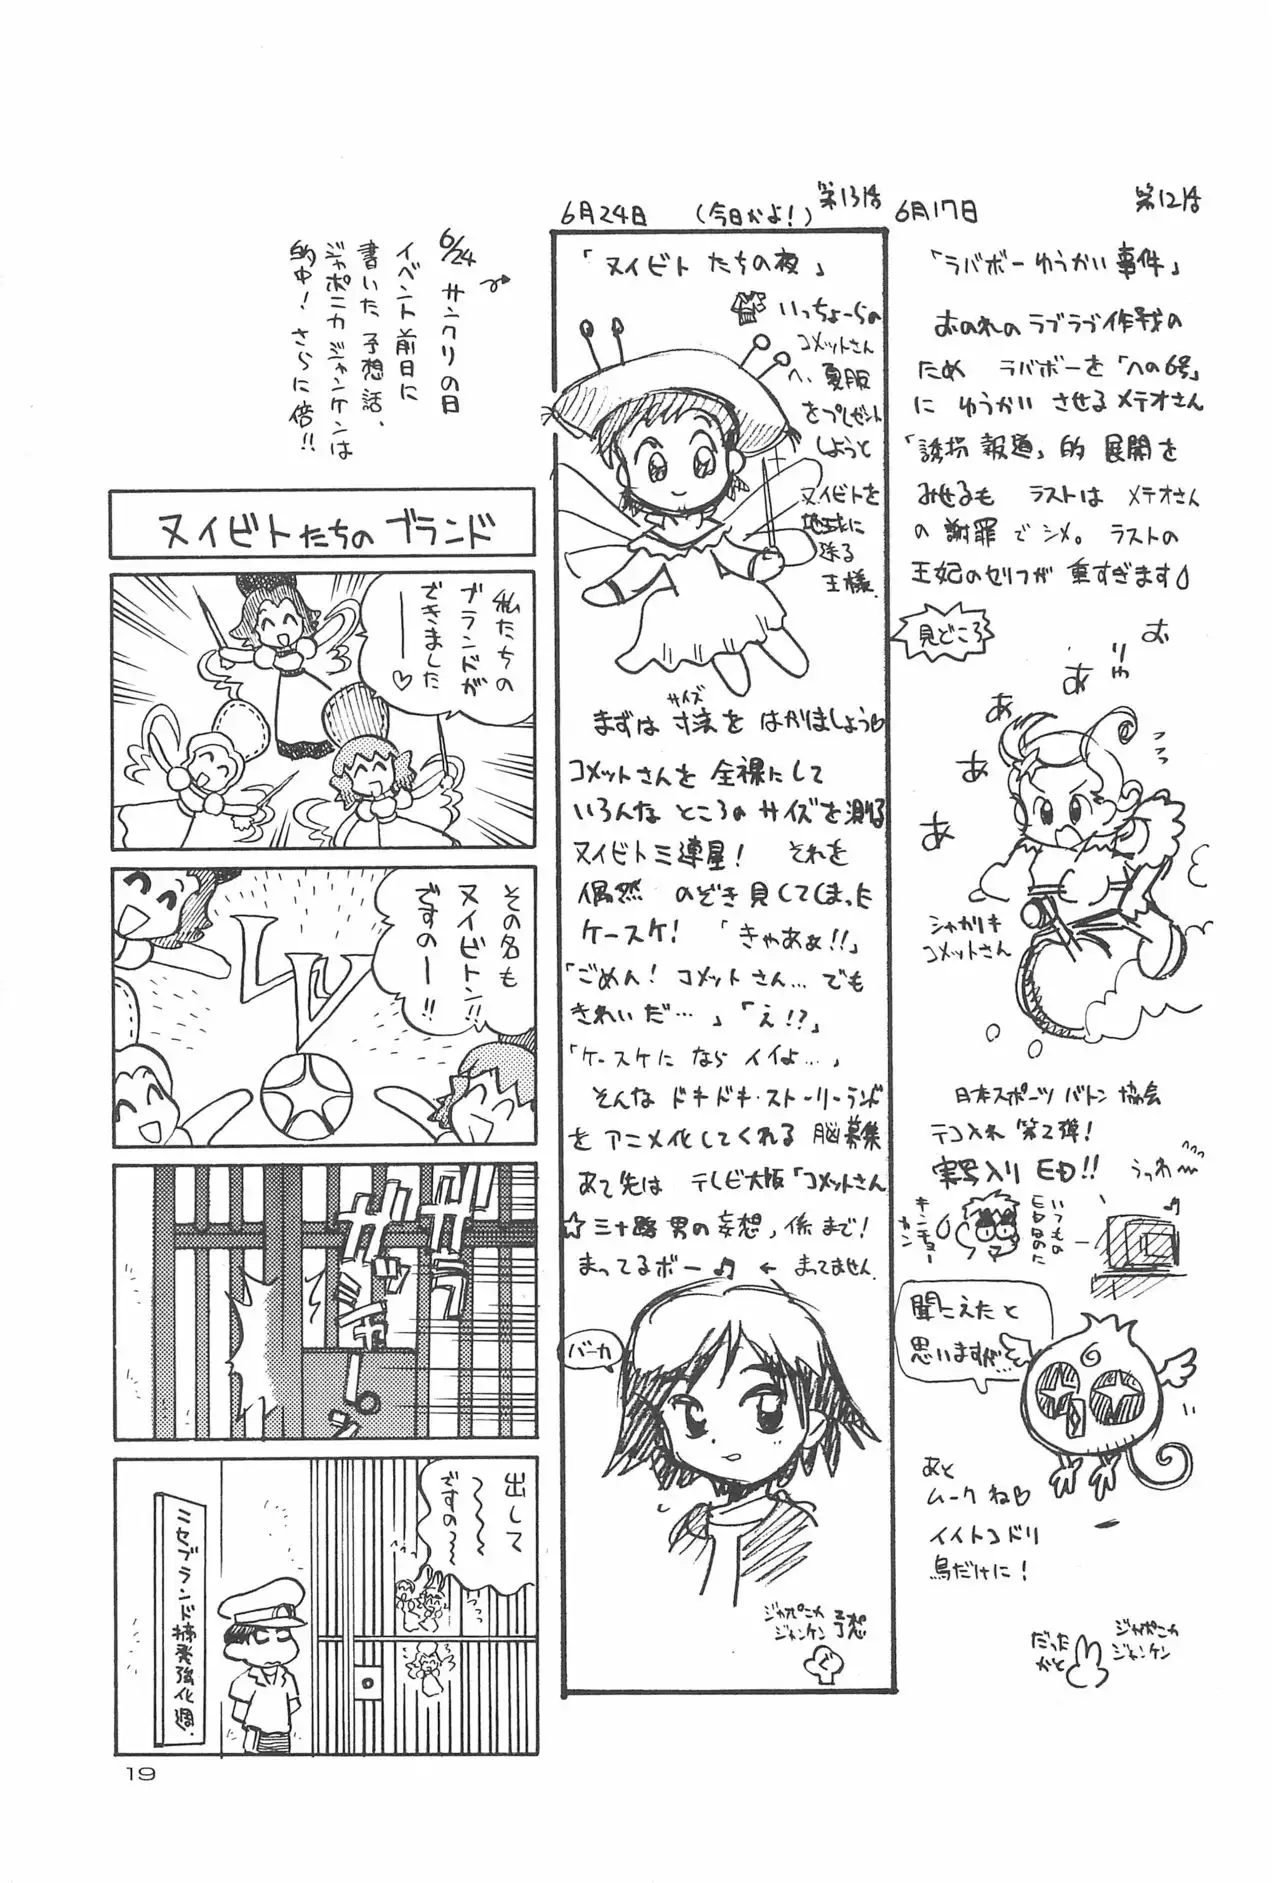 6月17日
第12話
「ラバボーゆうかい事件」
おのれのラブラブ作戦の
ため ラバボーを「への6号」
に ゆうかい させるメテオさん
「誘拐報道」的 展開を
みせるも ラストは メテオさん
の 謝罪で シメ。 ラストの
王妃のセリフが 重すぎます
見どころ
お
りゃ
あ
あ
あ
あ
シャカリキ
コメットさん
日本スポーツ バトン 協会
テコ入れ 第2弾!
実写入り ED!!
うっわ〜
いつもの
EDなのに
キンチョー
カン
聞こえたと
思いますが…と
あと
ムークね♡
イイトコドリ
鳥だけに!
ジャポニカ
ジャンケン
だった
かと
6月24日 (今日かよ!)
第13話
「ヌイビトたちの夜」
いっちょーらの
コメットさん
へ、夏服
をプレゼント
しようと
ヌイビトを
地球に
送る
王様.
まずは 寸法を はかりましょう♡
サイズ
コメットさんを 全裸にして
いろんな ところの サイズを測る
ヌイビト三連星! それを
偶然 のぞき見してしまった
ケースケ! 「きゃあぁ!!」
「ごめん! コメットさん… でも
きれいだ…」「え!?」
「ケースケに なら イイよ…」
そんな ドキドキ・ストーリーランド
を アニメ化してくれる 脳募集
あて先は テレビ大阪「コメットさん
☆三十路男の妄想」係まで!
まってるボー♫ ← まってません.
バーカ
ジャポニカ
ジャンケン
予想
ぐ
6/24 サンクリの日
イベント前日に
書いた 予想話、
ジャポニカ ジャンケンは
的中! さらに倍!!
ヌイビトたちの ブランド
私たちの
ブランドが
できました
――♡
その名も
ヌイビトン!!
ですのー!!
LV
ガラガラ
出して
〜〜〜
ですの〜
ニセブランド摘発強化週.
19